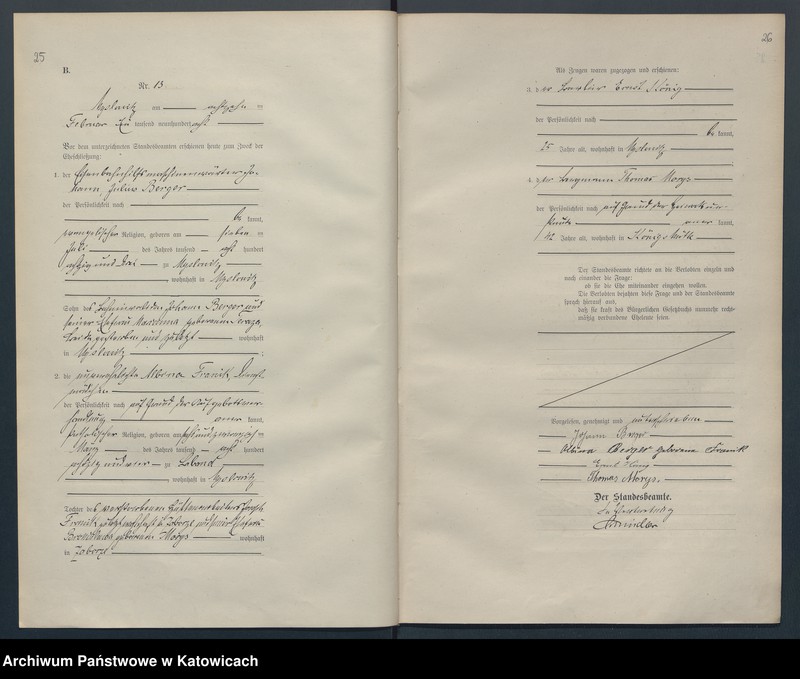 25
B.
Nr. 13.
Myslowitz am achtzehn ten
Februar tausend neunhundert acht
Vor dem unterzeichneten Standesbeamten erschienen heute zum Zweck der
Eheschließung:
1. der
Julius Berger
der Persönlichkeit nach
be kannt,
evangelischer Religion, geboren am sieben ten
Juli des Jahres tausend acht hundert
achtzig und drei zu Myslowitz
, wohnhaft in Myslowitz
Sohn des Johann Berger und
seiner Ehefrau geborenen
wohnhaft
in Myslowitz
2. die unverehelichte Albina Franik, Dienst-
mädchen
der Persönlichkeit nach auf Grund der Aufgebotsver-
handlung aner kannt,
katholischer Religion, geboren am ten
März des Jahres tausend acht hundert
achtzig und vier zu Laband
, wohnhaft in Myslowitz
Tochter des verstorbenen
Franik, zuletzt wohnhaft in Zaborze
geborenen Morys wohnhaft
in Zaborze
26
Als Zeugen waren zugezogen und erschienen:
3. der Ernst König
der Persönlichkeit nach
be kannt,
25 Jahre alt, wohnhaft in Myslowitz
4. der Thomas Morys
der Persönlichkeit nach auf Grund der
aner kannt,
42 Jahre alt, wohnhaft in Königshütte
Der Standesbeamte richtete an die Verlobten einzeln und
nach einander die Frage:
ob sie die Ehe miteinander eingehen wollen.
Die Verlobten bejahten diese Frage und der Standesbeamte
sprach hierauf aus,
daß sie kraft des Bürgerlichen Gesetzbuchs nunmehr recht-
mäßig verbundene Eheleute seien.
Vorgelesen, genehmigt und unterschrieben
Johann Berger
Albina Berger geborene Franik
Ernst König
Thomas Morys.
Der Standesbeamte.
In Vertretung
Archiwum Państwowe w Katowicach